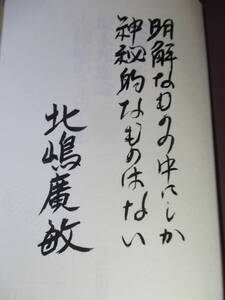 明解なものの中にしか
神秘的なものはない
北嶋廣敏